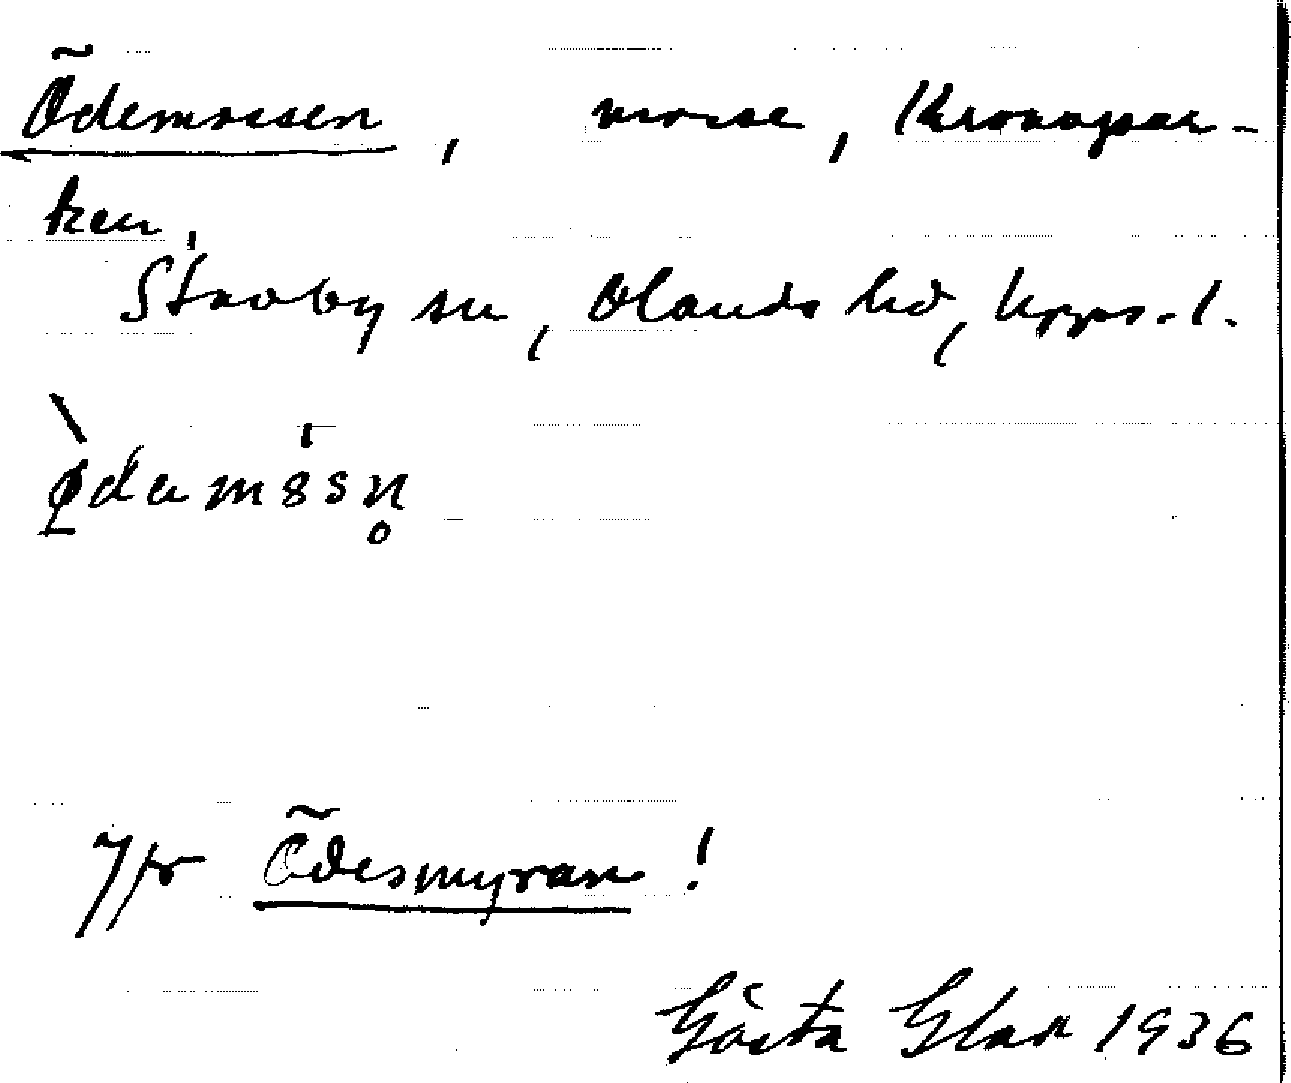 Ödemossen, mosse, Kronopar-
ken,
Stavby sn, Olands hd, Upps. l.
Jfr Ödesmyran!
Gösta Glad 1936